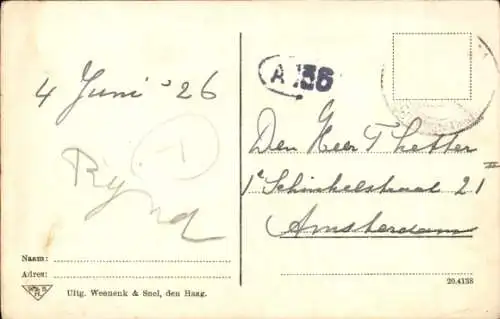 4 Juni '26
A 136
Den Heer T Letter
1e Schinkelstraat 21 II
Amsterdam
Naam:
Adres:
Uitg. Weenenk & Snel, den Haag.
20.4138